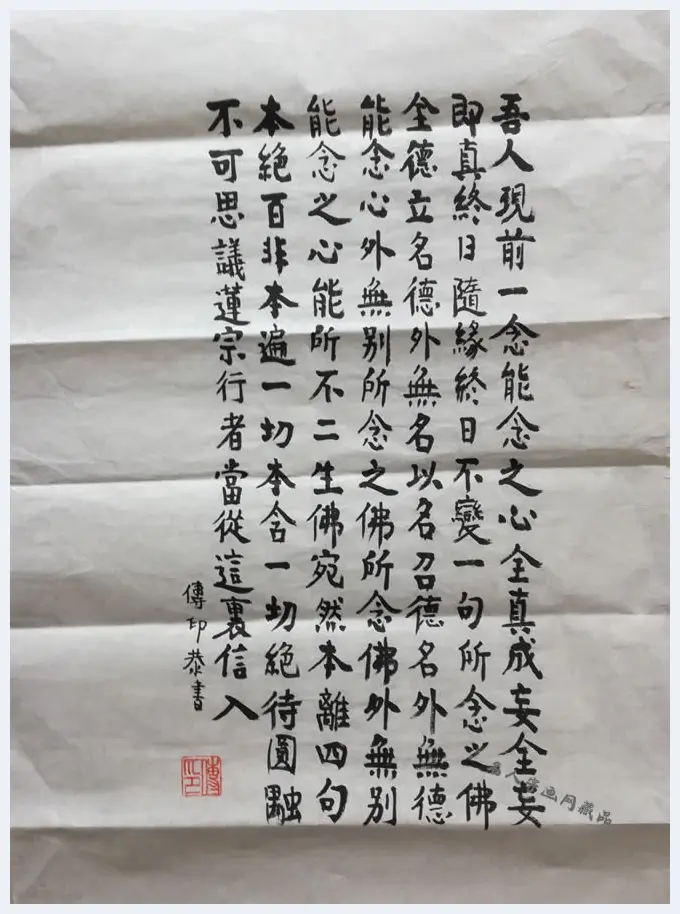 吾人現前一念能念之心全真成妄全妄
即真終日隨緣終日不變一句所念之佛
全德立名德外無名以名召德名外無德
能念心外無別所念之佛所念佛外無別
能念之心能所不二生佛宛然本離四句
本絕百非本遍一切本含一切絕待圓融
不可思議蓮宗行者當從這裏信入
傳印恭書
傳印
书画网藏品